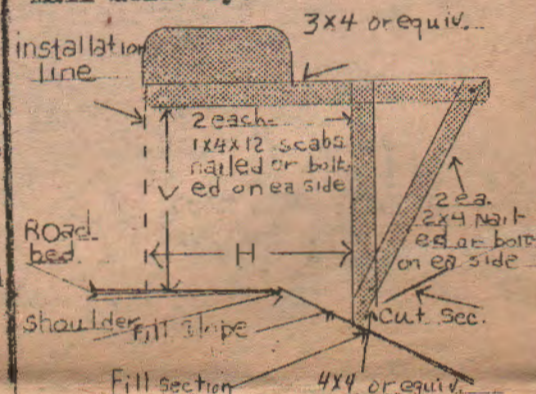 3x4 or equiv.
installation
line
2 each
1x4x12 scabs
nailed or bolt-
ed on ea side
V
H
2 ea.
2x4 nail-
ed or bolt
on ea side
Road
bed
shoulder
Fill slope
Cut Sec.
Fill section
4x4 or equiv.